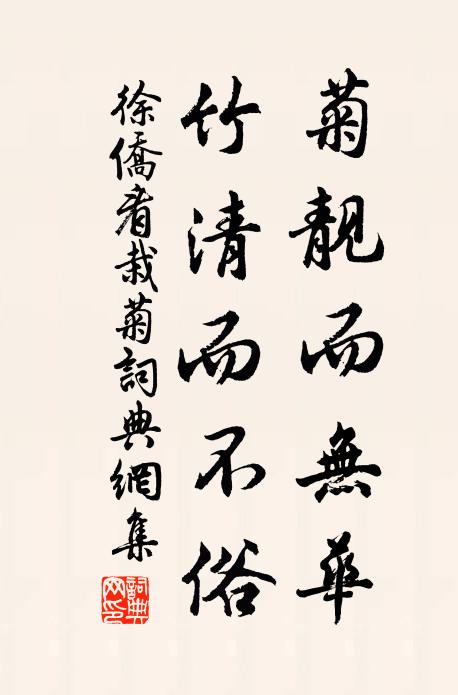 菊靚而無華
竹清而不俗
徐僑看栽菊詞典網集
詞典网印